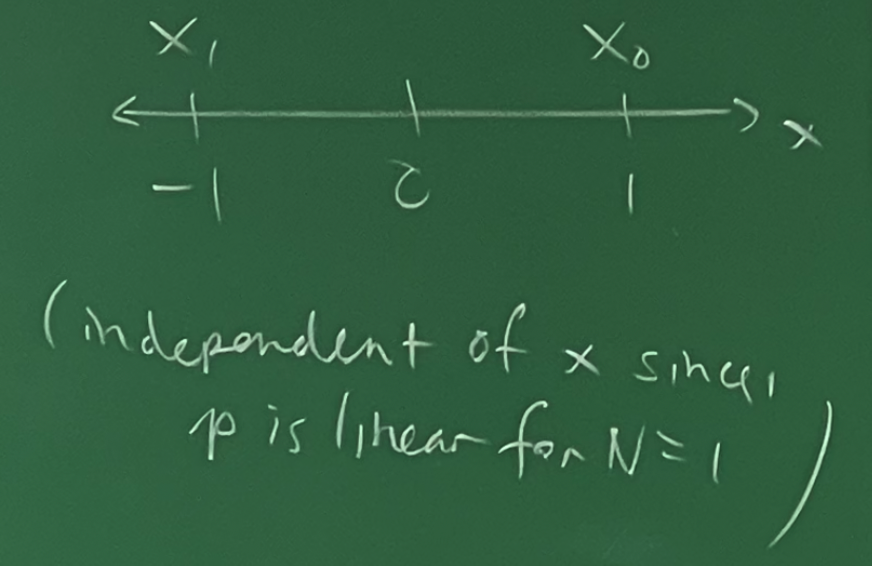 x₁ x₀
x
-1 0 1
(independent of x since,
p is linear for N=1)